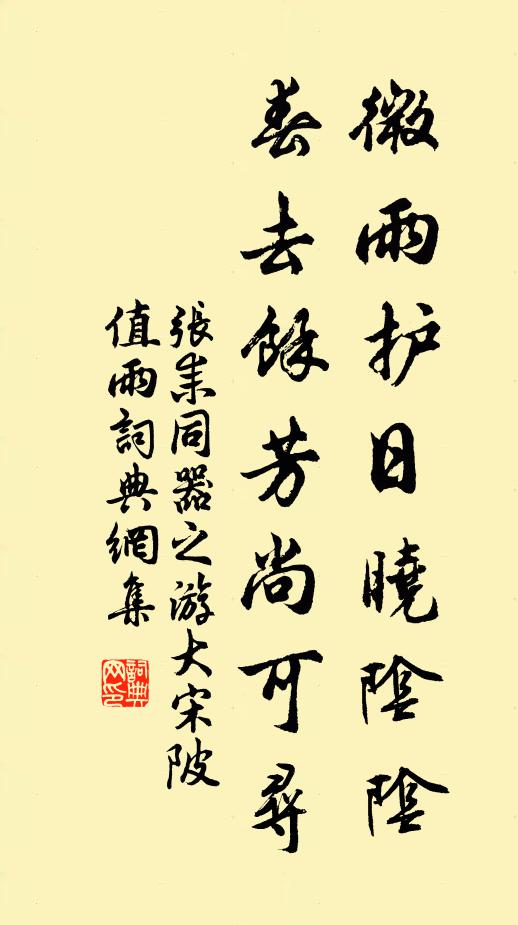 微雨护日曉陰陰
春去餘芳尚可尋
張耒同器之游大宋陂
值雨詞典網集
詞典网印